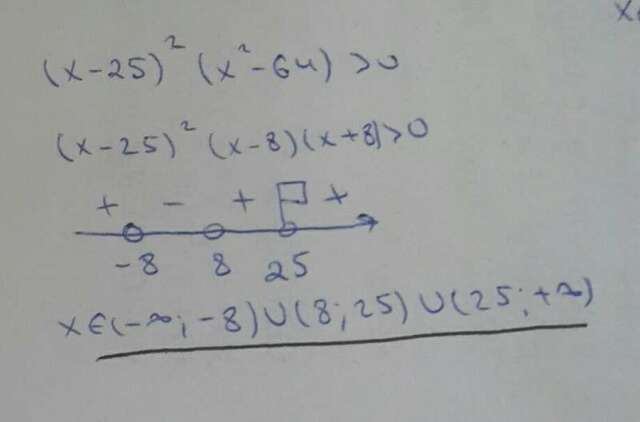 (x-25)² (x²-64) >0
(x-25)² (x-8)(x+8)>0
+ - + +
-8 8 25
x∈(-∞; -8)∪(8; 25)∪(25; +∞)